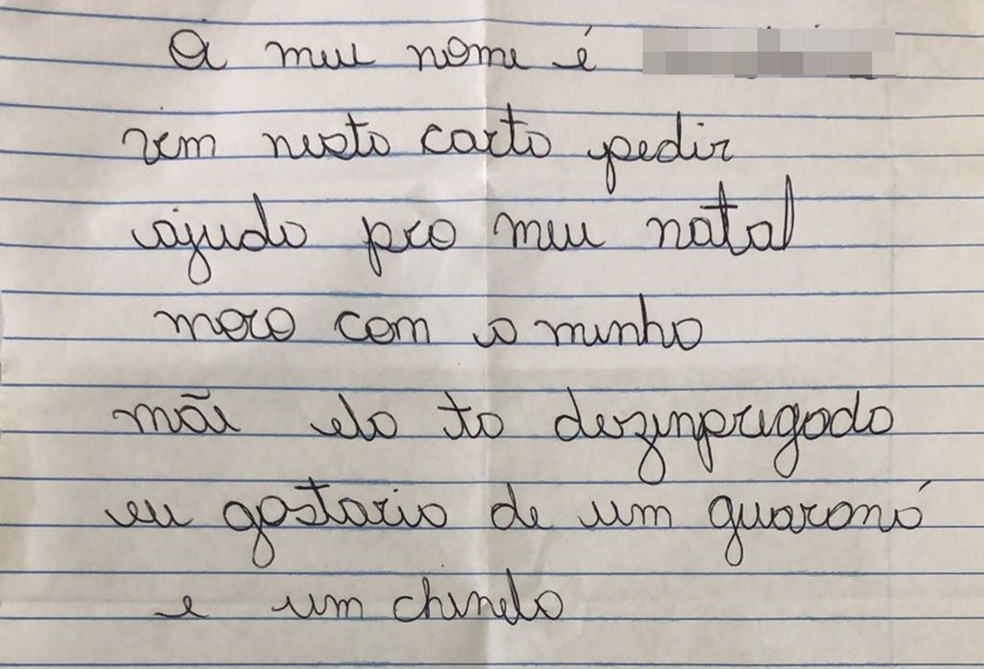 O meu nome é
vem nesta carta pedir
ajuda pra meu natal
moro com a minha
mãe ela ta dezinpregada
eu gostaria de um guaraná
e um chinelo